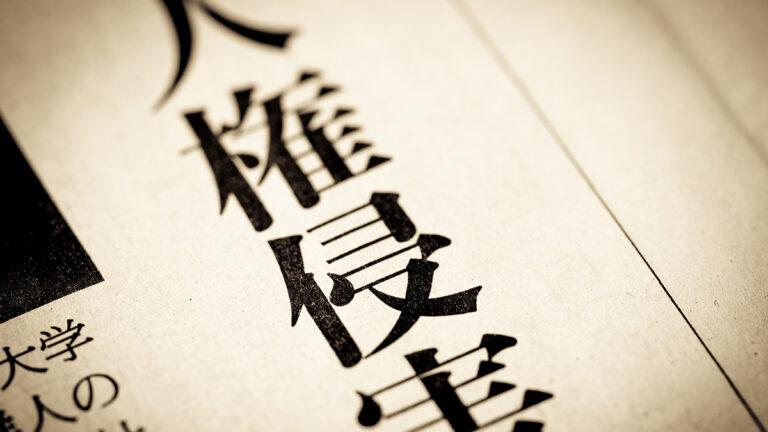 人権侵害
大学
人の